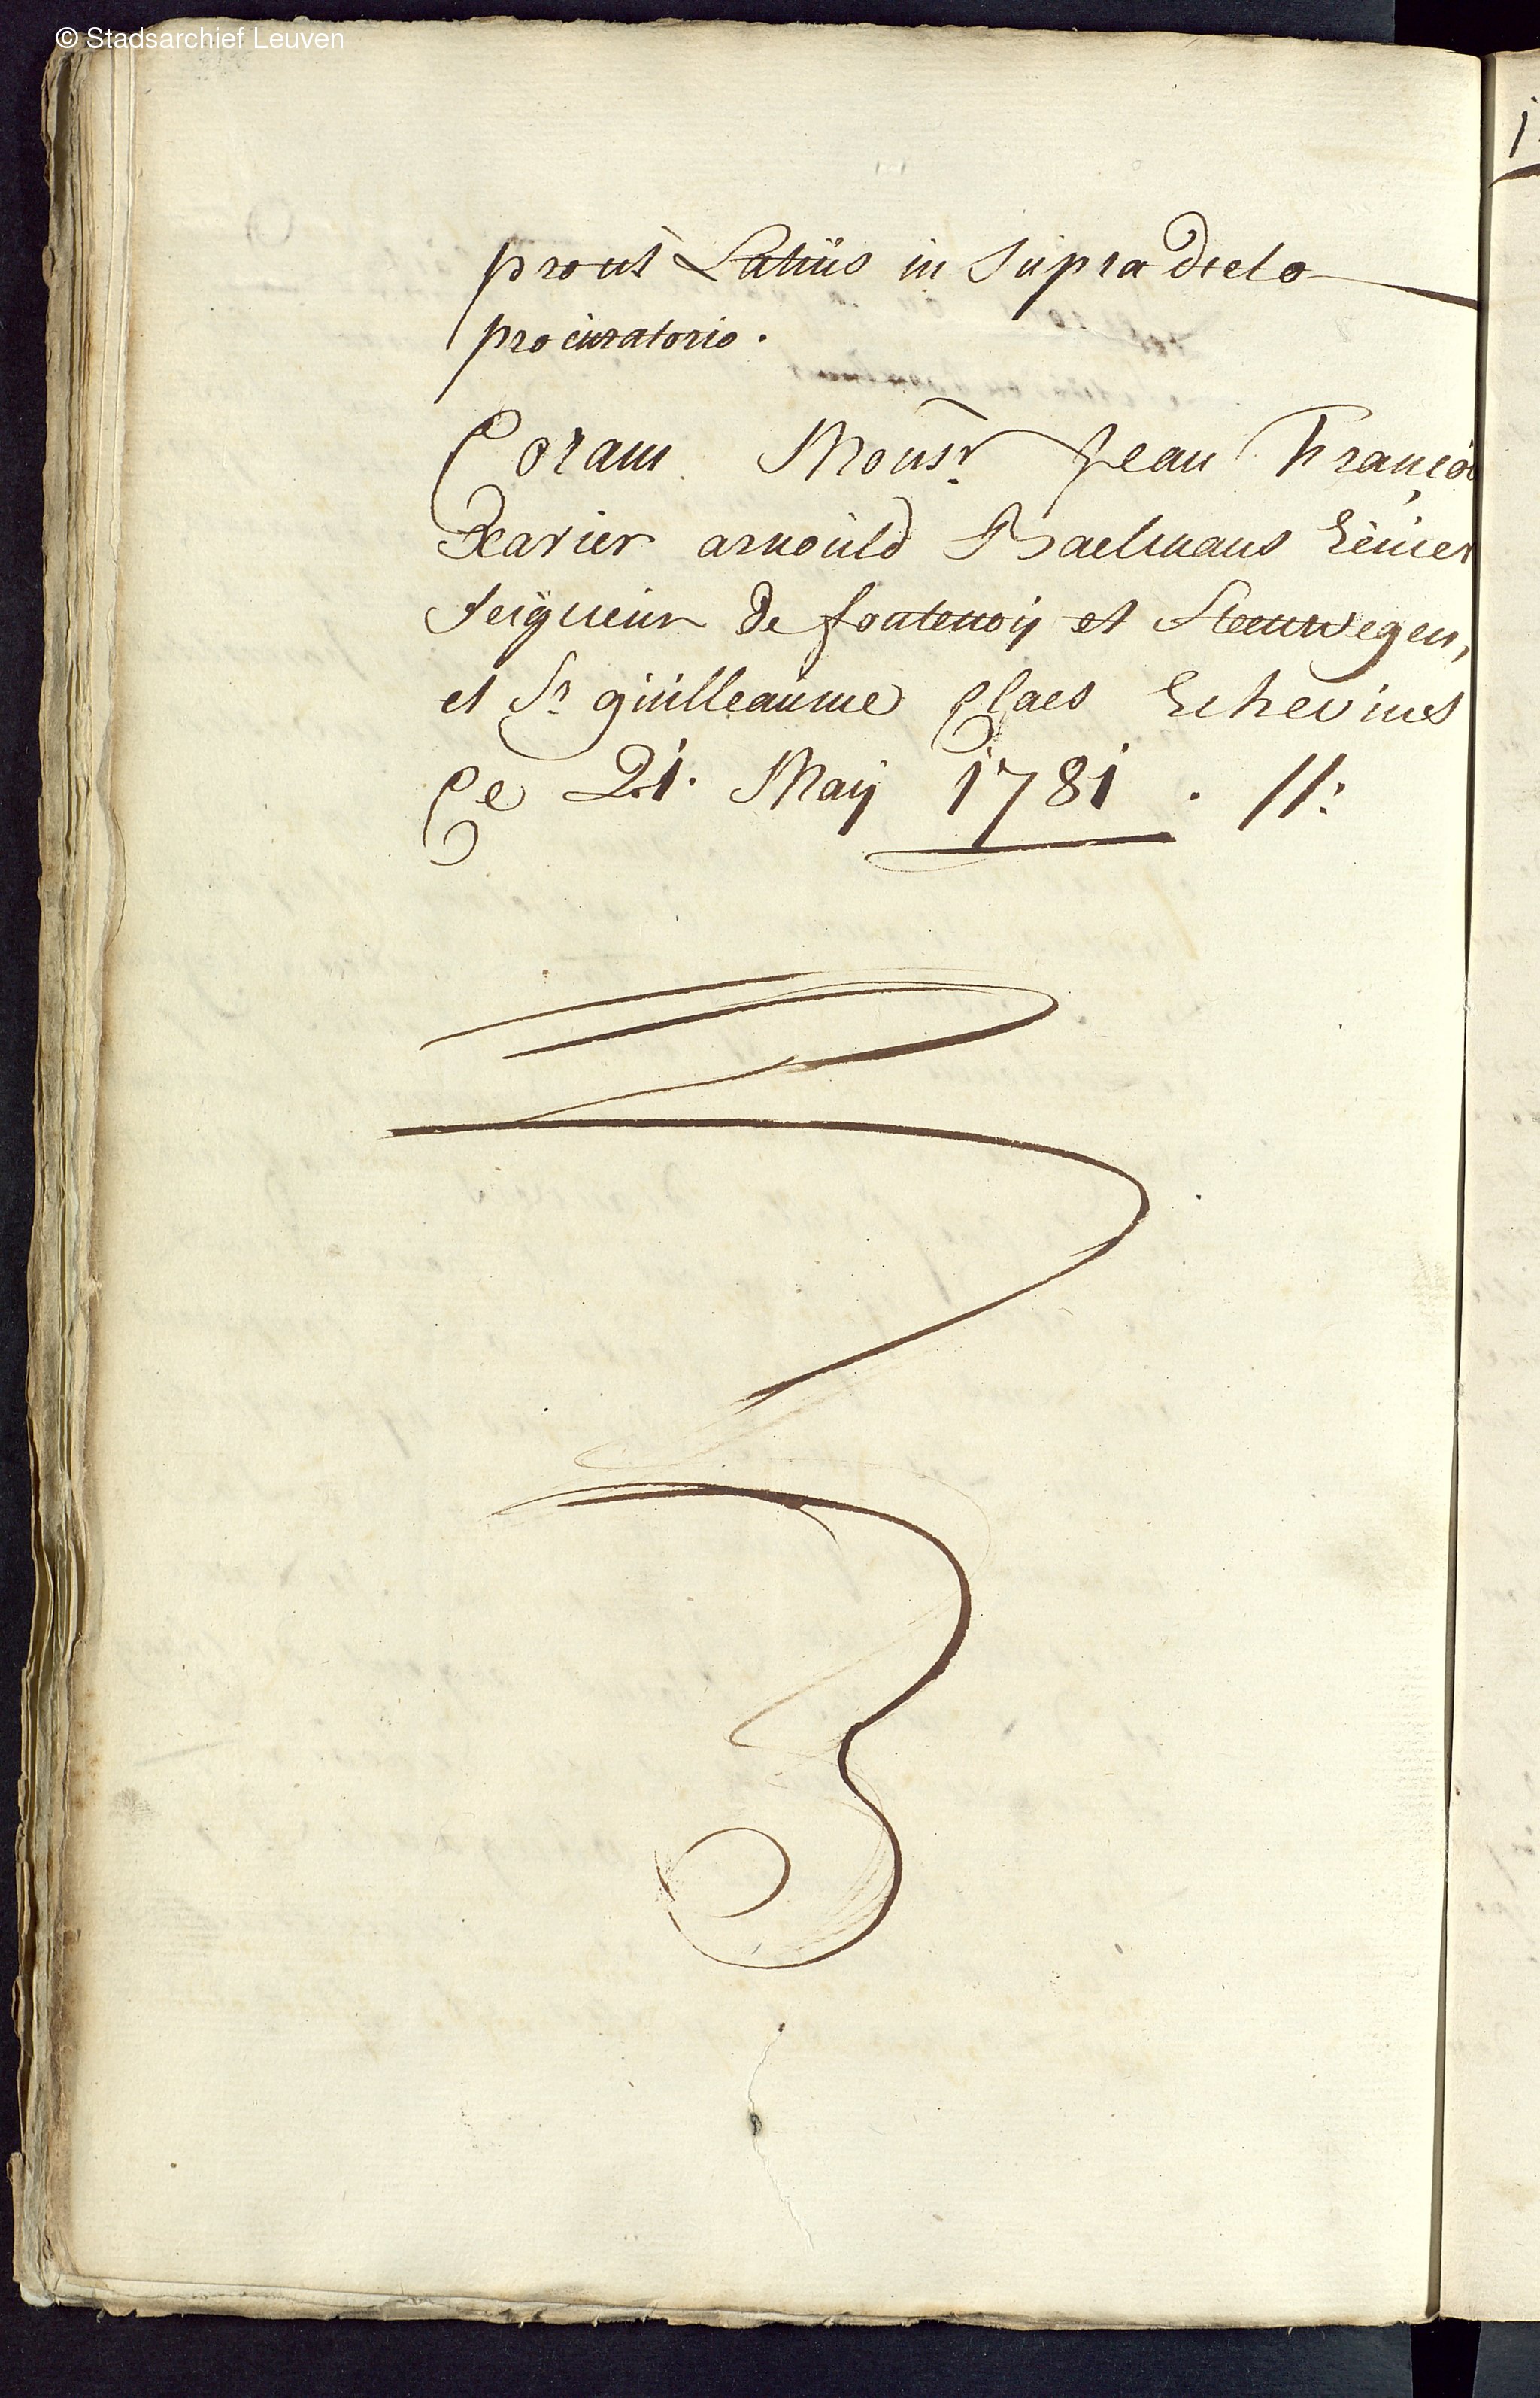 © Stadsarchief Leuven
prout Latius in supra dicto
procuratorio.
Coram Monsr Jean Françoi
Xavier arnould Baelmans Ecuier
seigneur de fontenoij et Steenwegen,
et Sr guilleaume Claes Echevines
Ce 21. Maij 1781. //: